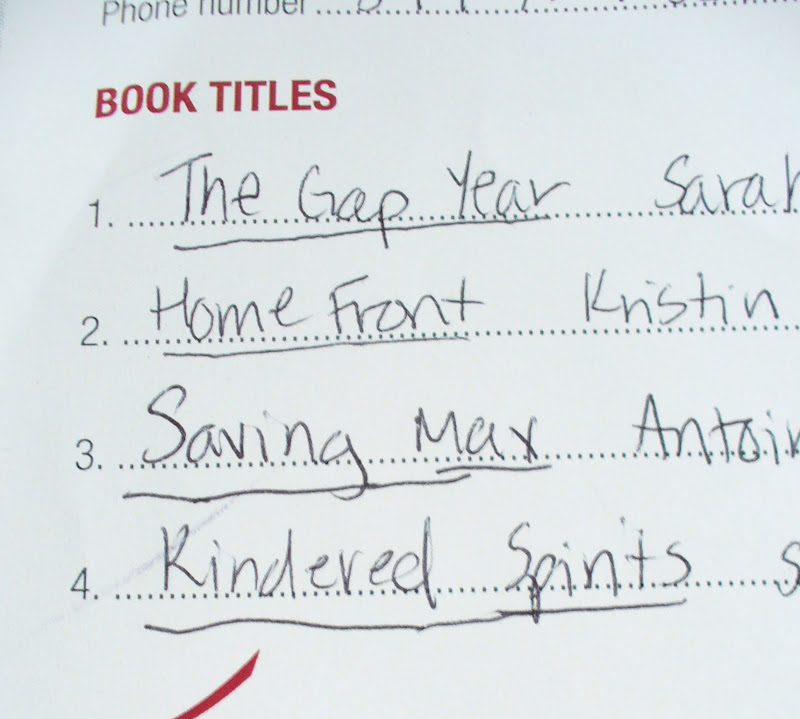 Phone number
BOOK TITLES
1. The Gap Year Sarah
2. Home Front Kristin
3. Saving Max Antoin
4. Kindered Spirits S